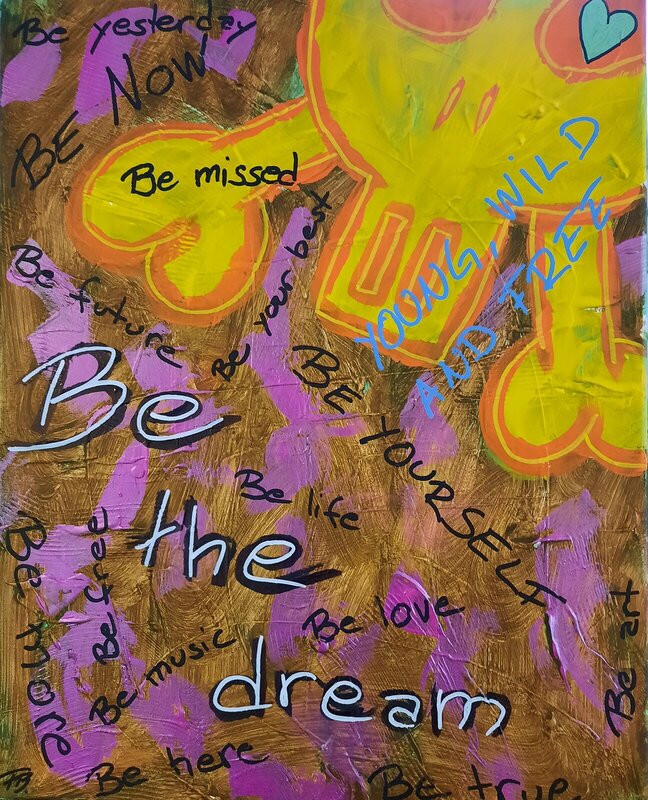 Be yesterday
BE NOW
Be missed
YOUNG, WILD
AND FREE
Be your best
Be future
BE YOURSELF
Be
the
dream
Be life
Be more
Be free
Be love
Be music
Be art
Be here
Be true.